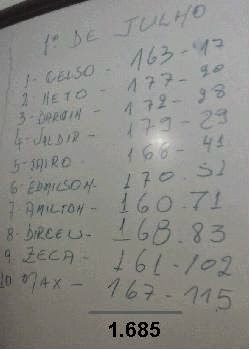 1º DE JULHO
1- CELSO - 163-17
2- NETO - 177-20
3- DARWIN - 172-28
4- VALDIR - 179-29
5- JAIRO. 166-41
6- EDMILSON- 170.51
7- AMILTON - 160.71
8- DIRCEU - 168.83
9- ZECA - 161-102
10 MAX - 167-115
1.685